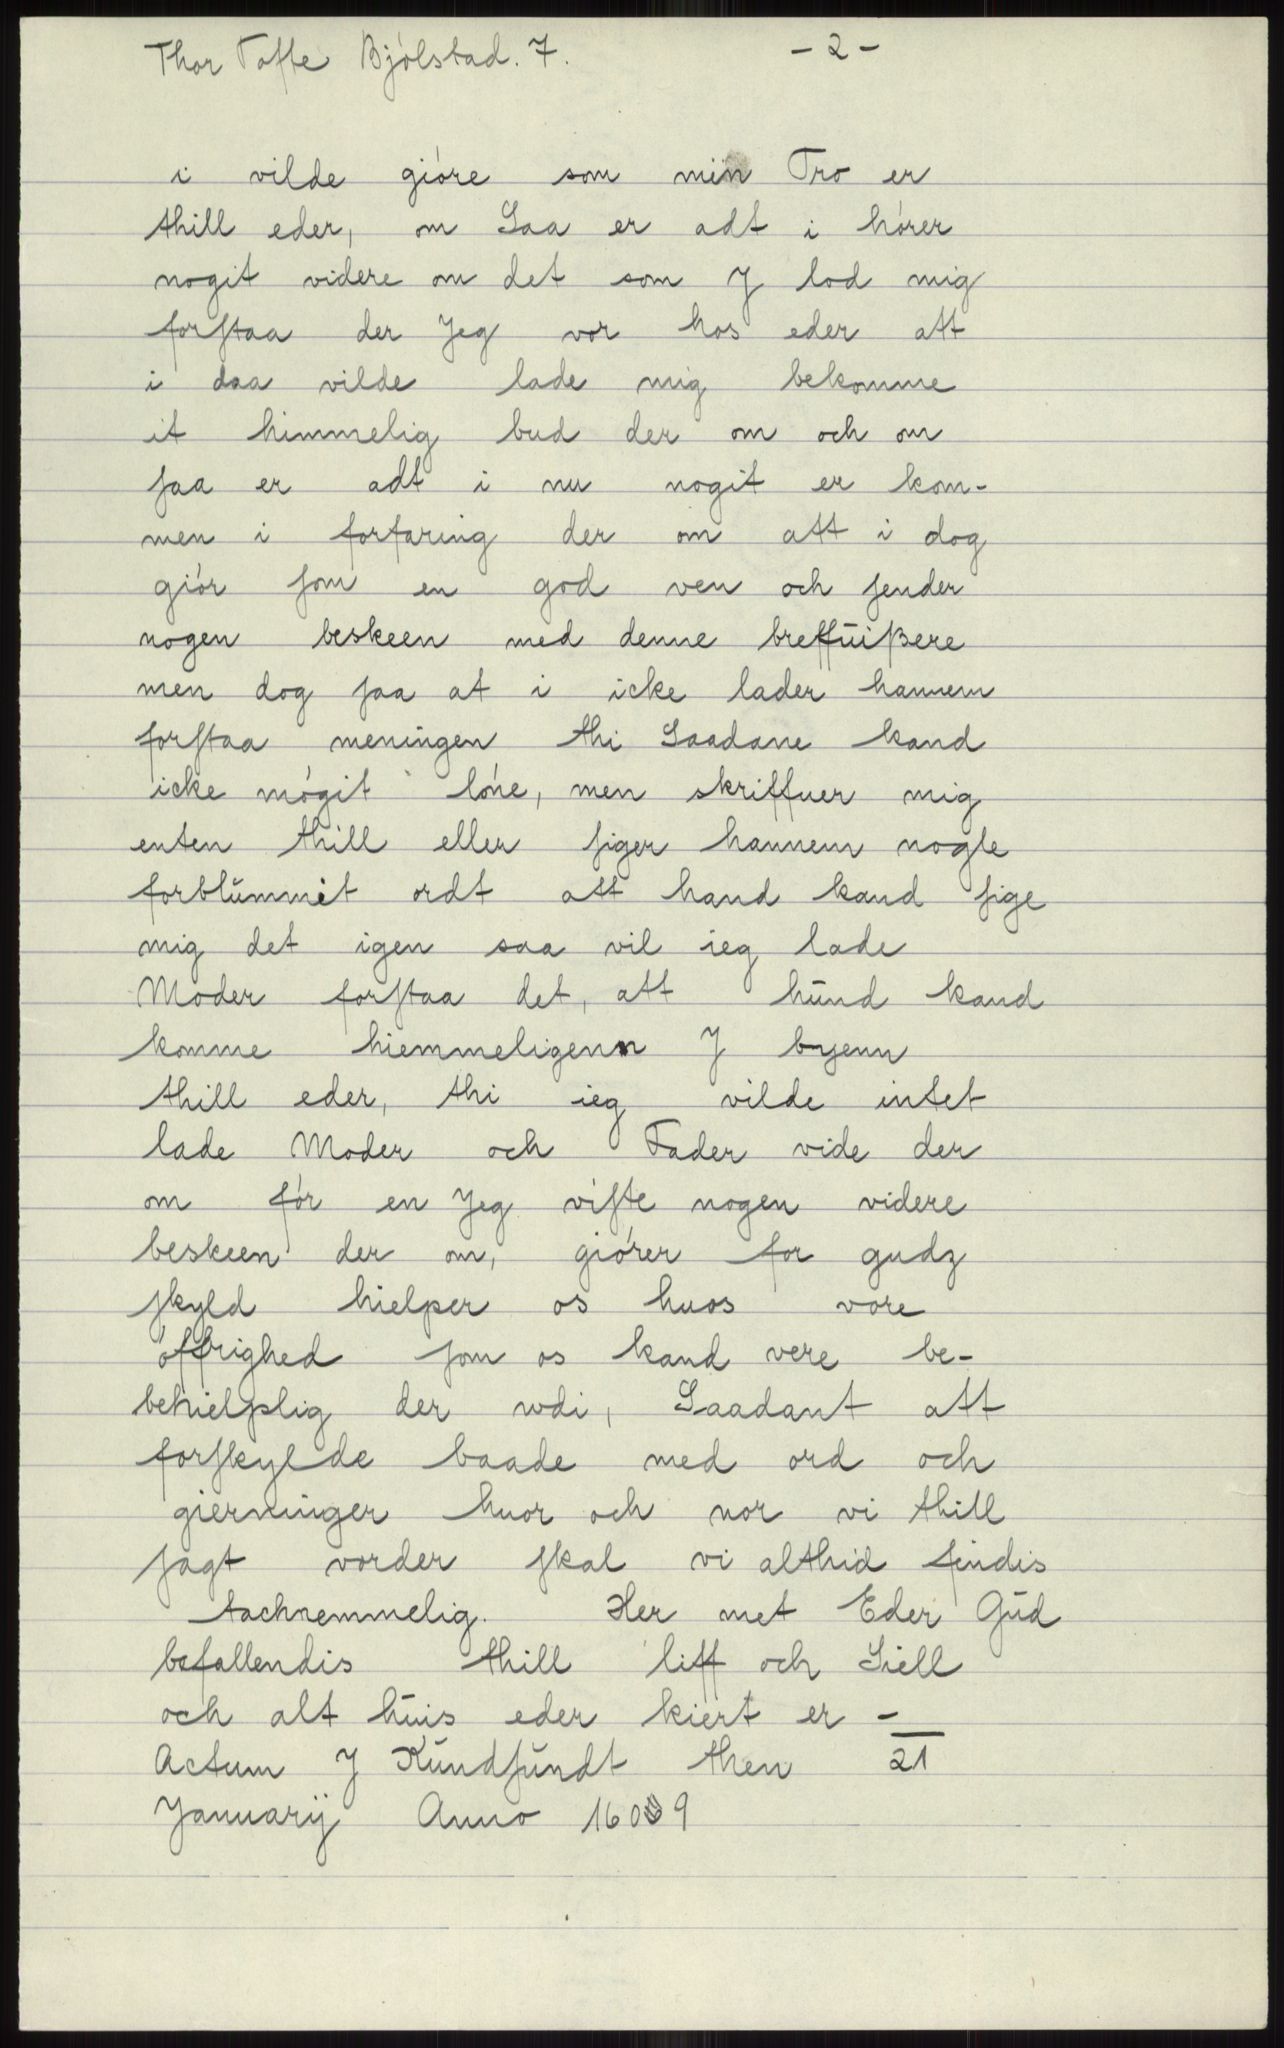 Thor Tofte Bjólstad. 7. - 2 -
i vilde gióre som min Tro er
thill eder, om Saa er adt i hórer
nogit videre om det som J lod mig
forstaa der Jeg vor hos eder att
i daa vilde lade mig bekomme
it himmelig bud der om och om
saa er adt i nu nogit er kom-
men i forfaring der om att i dog
giór som en god ven och sender
nogen beskeen med denne breffūißere
men dog saa at i icke lader hannem
forstaa meningen thi Saadane kand
icke mógit lóne, men skriffuer mig
enten thill eller siger hannem nogle
forblūmmit ordt att hand kand sige
mig det igen saa vil ieg lade
Moder forstaa det, att hūnd kand
komme hiemmeligenn J byenn
thill eder, thi ieg vilde intet
lade Moder och Fader vide der
om fór en Jeg viste nogen videre
beskeen der om, giórer for gudz
skyld hielper os huos vore
óffrighed som os kand vere be-
behielpslig der udi, Saadant att
forskylde baade med ord och
gierninger huor och nor vi thill
sagt vorder skal vi althid findis
tachnemmelig. Her met Eder Gūd
befallendis thill liff och Siell
och alt hūis eder kiert er -
Actum J Kūndsūndt then 21
Januarij Anno 1609